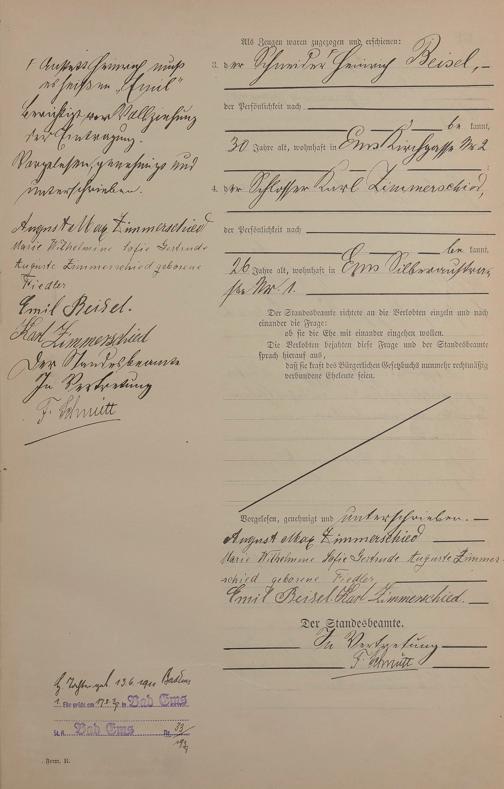 Anstatt Heinrich muß
es heißen "Emil"
berichtigt vor Vollziehung
der Eintragung.
Vorgelesen, genehmigt und
unterschrieben.
August Max Zimmerschied
Marie Wilhelmine Sofie Gertrude
Auguste Zimmerschied geborene
Fiedler
Emil Beisel.
Karl Zimmerschied
Der Standesbeamte
In Vertretung
F. Schmitt
1. Ehe in Bad Ems
St. A. Bad Ems Nr.
Form. B.
Als Zeugen waren zugezogen und erschienen:
3. der Schneider Heinrich Beisel,
der Persönlichkeit nach
be kannt,
30 Jahre alt, wohnhaft in Ems Kirchgasse Nr. 2
4. der Schlosser Karl Zimmerschied,
der Persönlichkeit nach
be kannt,
26 Jahre alt, wohnhaft in Ems Silberaustra-
ße Nr. 1.
Der Standesbeamte richtete an die Verlobten einzeln und nach
einander die Frage:
ob sie die Ehe mit einander eingehen wollen.
Die Verlobten bejahten diese Frage und der Standesbeamte
sprach hierauf aus,
daß sie kraft des Bürgerlichen Gesetzbuchs nunmehr rechtmäßig
verbundene Eheleute seien.
Vorgelesen, genehmigt und unterschrieben.
August Max Zimmerschied
Marie Wilhelmine Sofie Gertrude Auguste Zimmer-
schied geborene Fiedler
Emil Beisel. Karl Zimmerschied.
Der Standesbeamte.
In Vertretung
F. Schmitt